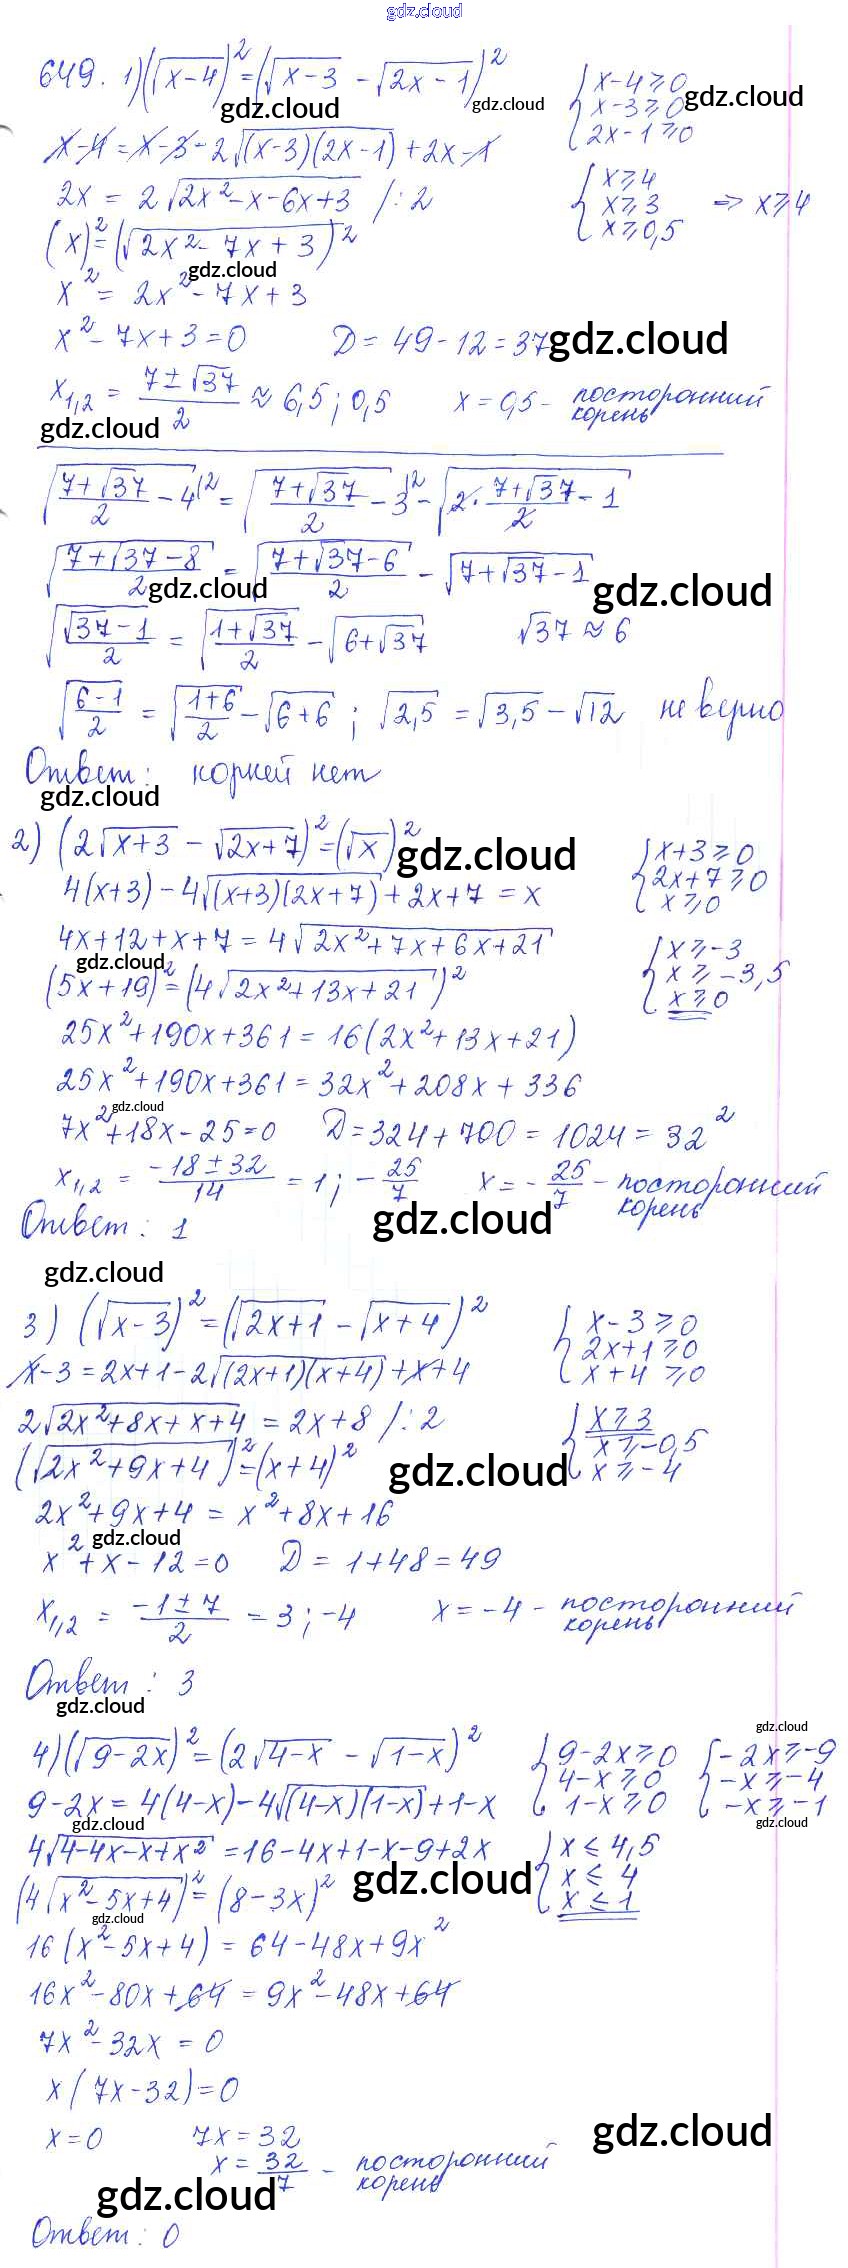 gdz.cloud
649. 1) (√(x-4))² = (√(x-3) - √(2x-1))² { x-4⩾0
gdz.cloud gdz.cloud x-3⩾0 gdz.cloud
2x-1⩾0
x-4 = x-3-2√((x-3)(2x-1)) + 2x-1
2x = 2√(2x²-x-6x+3) /:2 { x⩾4
x⩾3 => x⩾4
x⩾0,5
(x)² = (√(2x²-7x+3))²
gdz.cloud
x² = 2x²-7x+3
x²-7x+3=0 D = 49-12=37 gdz.cloud
x₁,₂ = (7±√37)/2 ≈ 6,5; 0,5 x=0,5 - посторонний корень
gdz.cloud
√((7+√37)/2 - 4)² = √((7+√37)/2 - 3)² - √(2·(7+√37)/2 - 1)
√((7+√37-8)/2) = √((7+√37-6)/2) - √(7+√37-1)
gdz.cloud gdz.cloud
√((√37-1)/2) = √((1+√37)/2) - √(6+√37) √37 ≈ 6
√((6-1)/2) = √((1+6)/2) - √(6+6); √2,5 = √3,5 - √12 неверно
Ответ: корней нет
gdz.cloud
2) (2√(x+3) - √(2x+7))² = (√x)² { x+3⩾0
gdz.cloud 2x+7⩾0
x⩾0
4(x+3)-4√((x+3)(2x+7)) + 2x+7 = x
4x+12+x+7 = 4√(2x²+7x+6x+21) { x⩾-3
gdz.cloud x⩾-3,5
x⩾0
(5x+19)² = (4√(2x²+13x+21))²
25x²+190x+361 = 16(2x²+13x+21)
25x²+190x+361 = 32x²+208x+336
gdz.cloud
7x²+18x-25=0 D=324+700=1024=32²
x₁,₂ = (-18±32)/14 = 1; -25/7 x=-25/7 - посторонний корень
Ответ: 1 gdz.cloud
gdz.cloud
3) (√(x-3))² = (√(2x+1) - √(x+4))² { x-3⩾0
2x+1⩾0
x+4⩾0
x-3 = 2x+1-2√((2x+1)(x+4)) + x+4
2√(2x²+8x+x+4) = 2x+8 /:2 { x⩾3
x⩾-0,5
x⩾-4
(√(2x²+9x+4))² = (x+4)² gdz.cloud
2x²+9x+4 = x²+8x+16
gdz.cloud
x²+x-12=0 D = 1+48=49
x₁,₂ = (-1±7)/2 = 3; -4 x=-4 - посторонний корень
Ответ: 3
gdz.cloud
gdz.cloud
4) (√(9-2x))² = (2√(4-x) - √(1-x))² { 9-2x⩾0 { -2x⩾-9
4-x⩾0 -x⩾-4
1-x⩾0 -x⩾-1
9-2x = 4(4-x)-4√((4-x)(1-x)) + 1-x
gdz.cloud gdz.cloud
4√(4-4x-x+x²) = 16-4x+1-x-9+2x { x⩽4,5
x⩽4
x⩽1
(4√(x²-5x+4))² = (8-3x)² gdz.cloud
gdz.cloud
16(x²-5x+4) = 64-48x+9x²
16x²-80x+64 = 9x²-48x+64
7x²-32x = 0
x(7x-32)=0
x=0 7x=32 gdz.cloud
x=32/7 - посторонний корень
gdz.cloud gdz.cloud
Ответ: 0